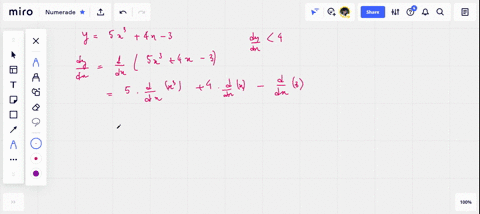 miro Numerade Share
y = 5x³ + 4x - 3
dy/dx < 4
dy/dx = d/dx ( 5x³ + 4x - 3)
= 5 · d/dx (x³) + 4 · d/dx (x) - d/dx (3)
100%